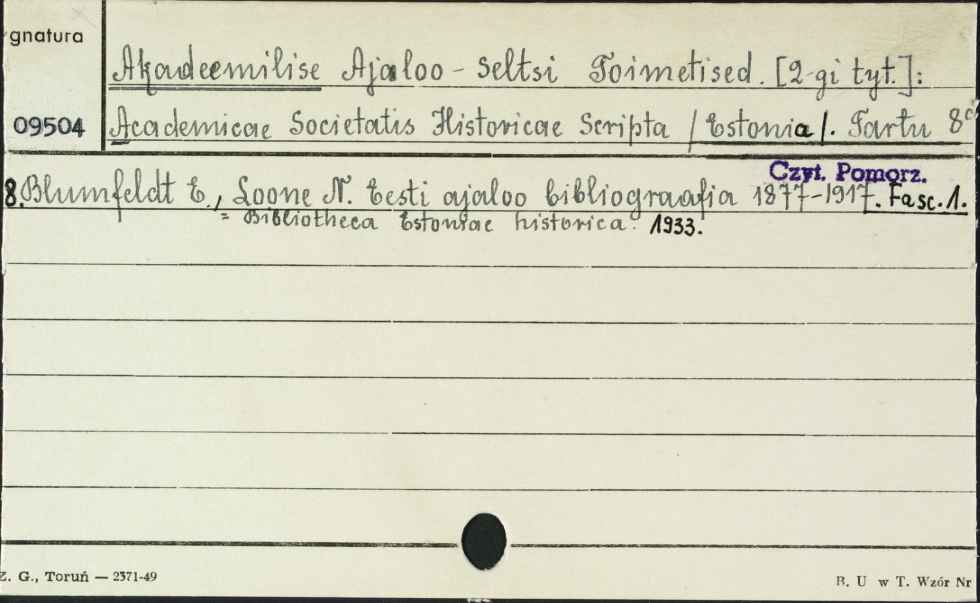 gnatura
Akadeemilise Ajaloo-Seltsi Toimetised. [2-gi tyt.]:
09504
Academicae Societatis Historicae Scripta /Estonia/. Tartu 8°
Czyt. Pomorz.
8. Blumfeldt E., Loone N. Eesti ajaloo bibliograafia 1877-1917. Fasc. 1.
= Bibliotheca Estoniae historica. 1933.
Z. G., Toruń — 2371-49
B. U w T. Wzór Nr